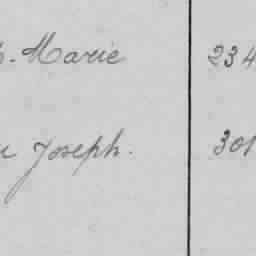 Marie 234
Joseph. 301